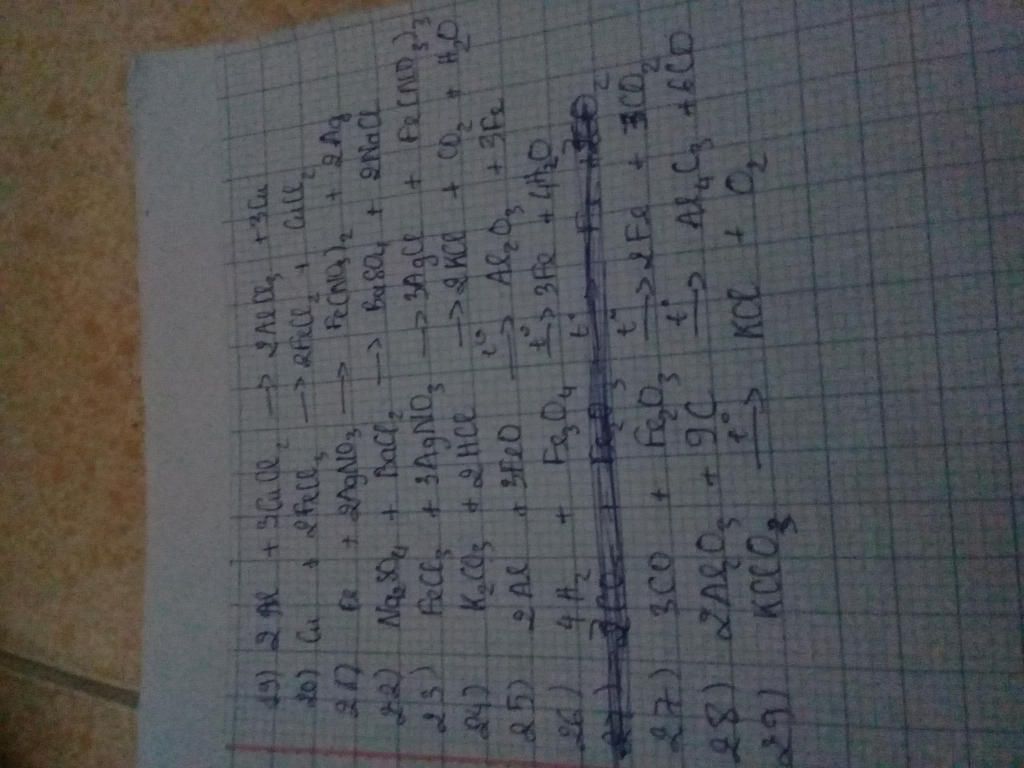 19) 2Al + 3CuCl₂ → 2AlCl₃ + 3Cu
20) Cu + 2FeCl₃ → 2FeCl₂ + CuCl₂
21) Fe + 2AgNO₃ → Fe(NO₃)₂ + 2Ag
22) Na₂SO₄ + BaCl₂ → BaSO₄ + 2NaCl
23) FeCl₃ + 3AgNO₃ → 3AgCl + Fe(NO₃)₃
24) K₂CO₃ + 2HCl → 2KCl + CO₂ + H₂O
25) 2Al + 3FeO t° → Al₂O₃ + 3Fe
26) 4H₂ + Fe₃O₄ t° → 3Fe + 4H₂O
27) 3CO + Fe₂O₃ t° → 2Fe + 3CO₂
28) 2Al₂O₃ + 9C t° → Al₄C₃ + 6CO
29) KClO₃ t° → KCl + O₂